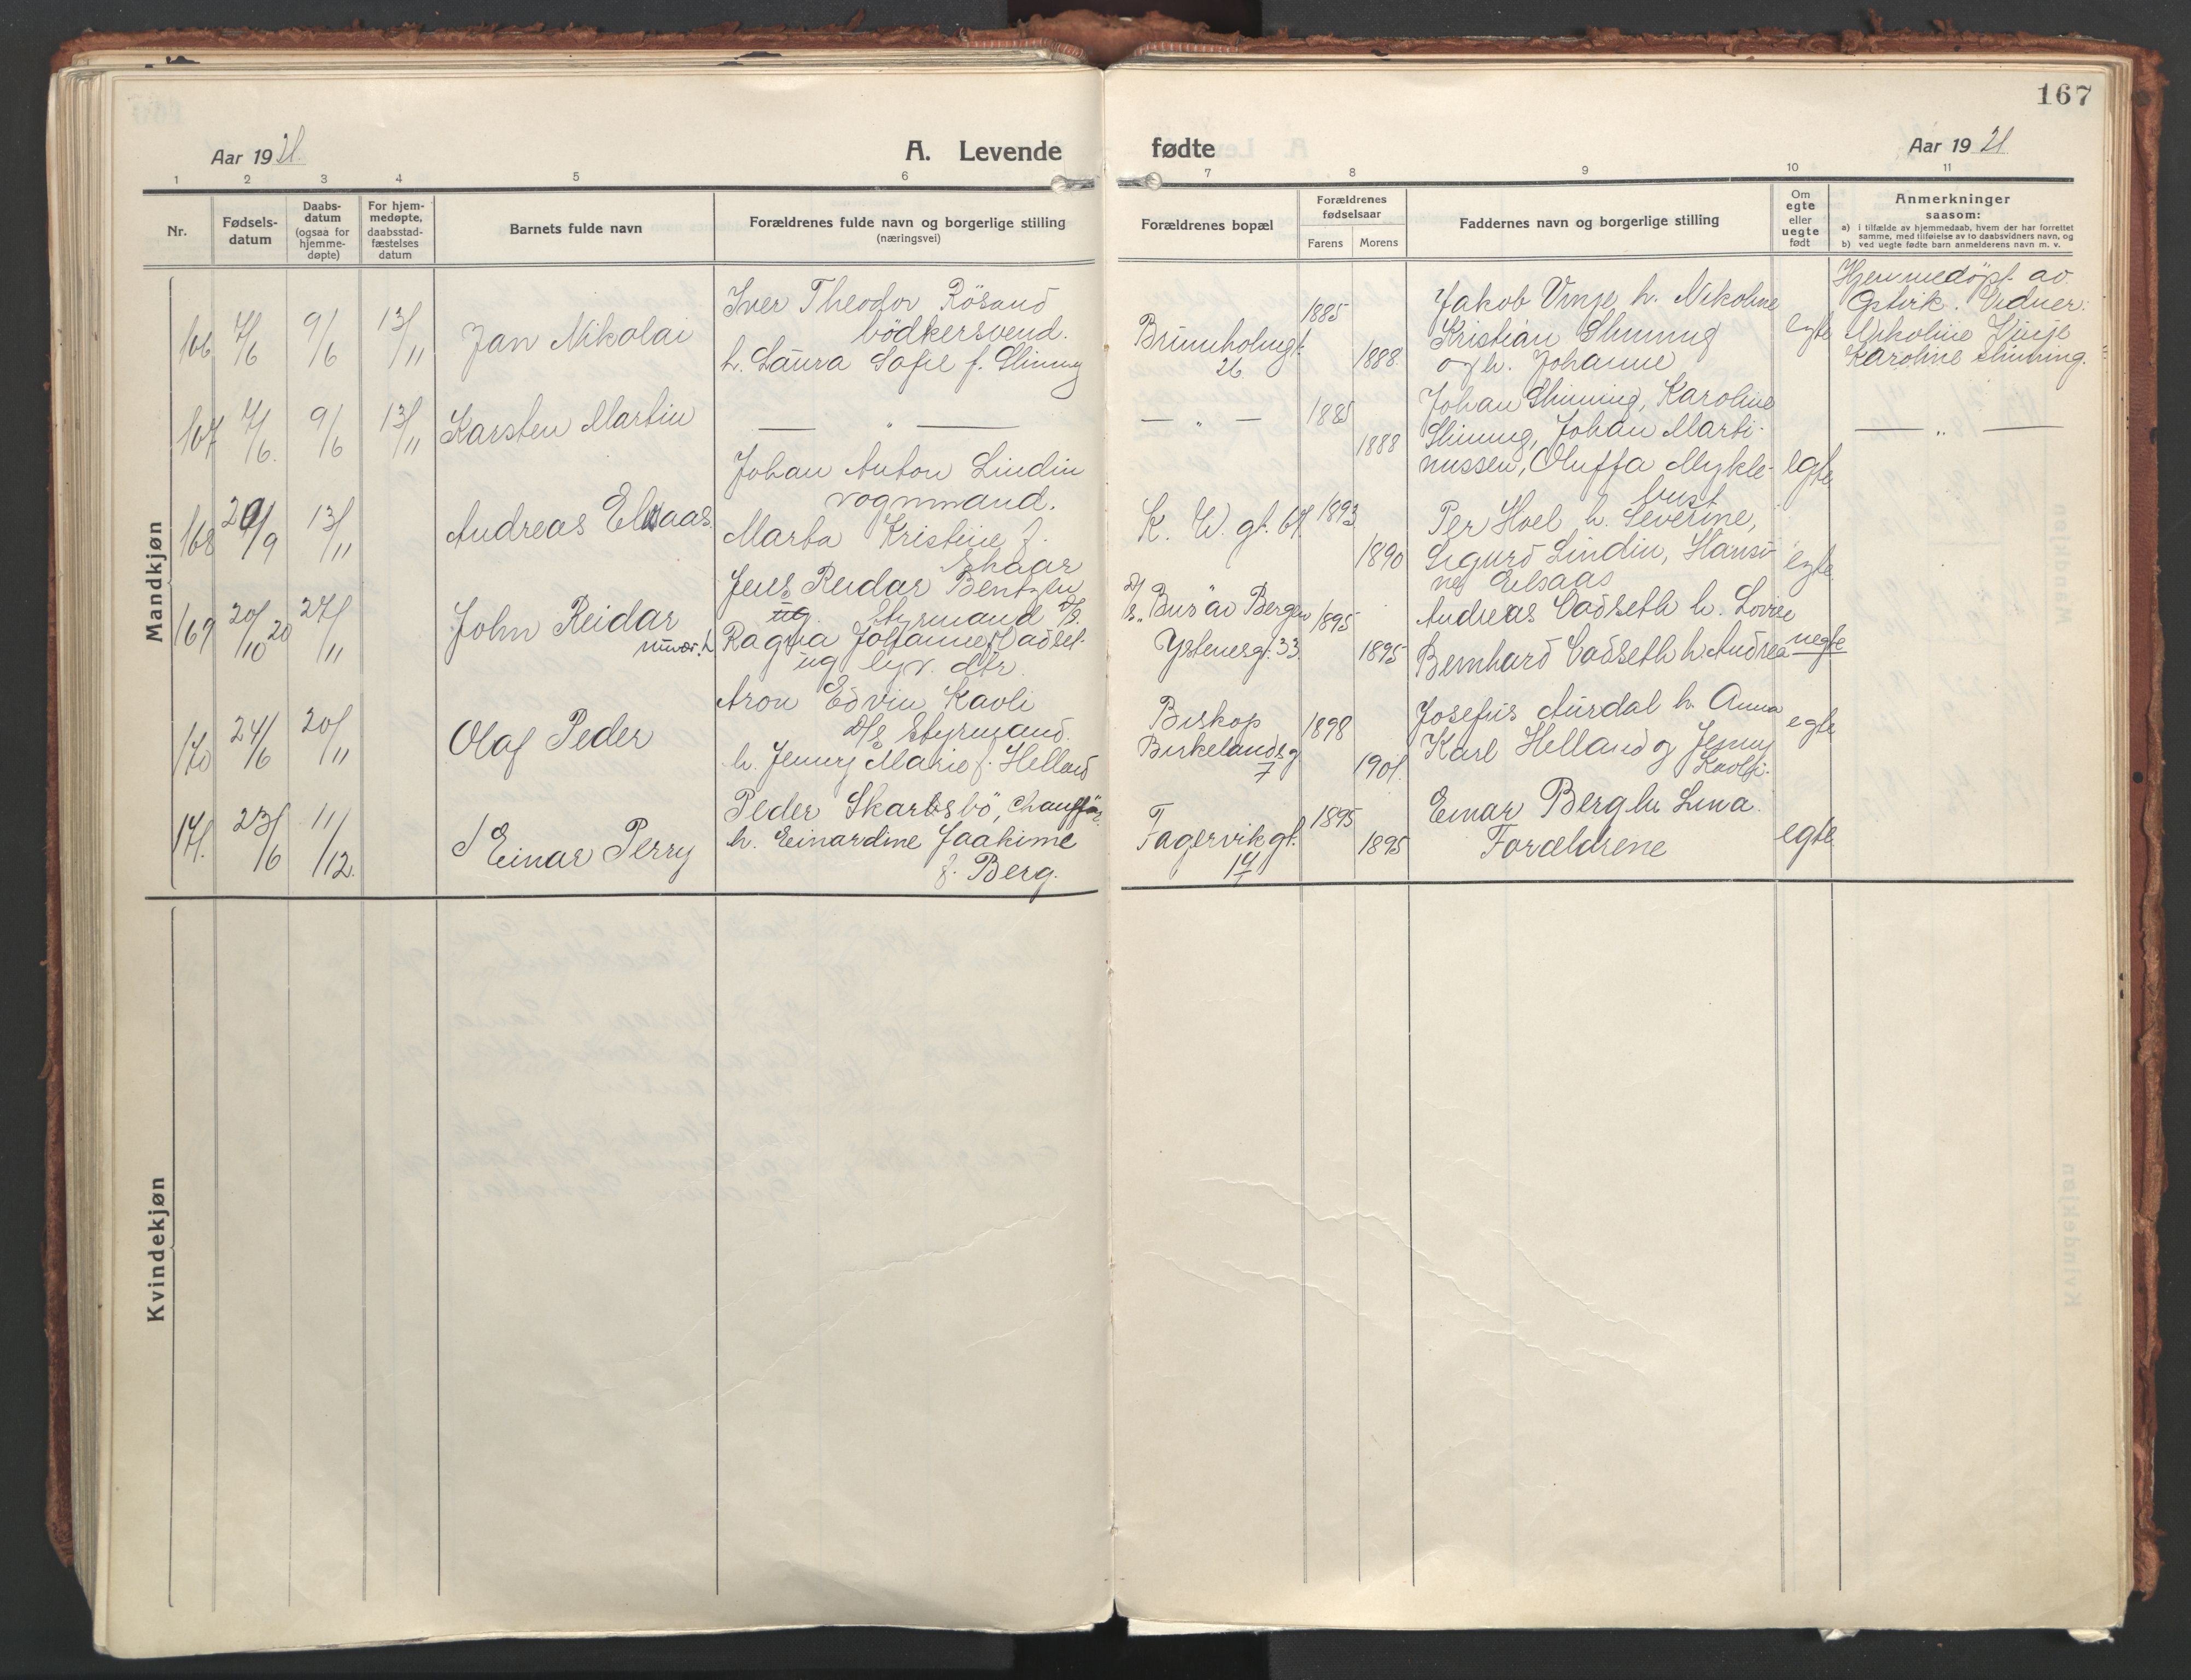 167
Aar 1921.
A. Levende
fødte
Aar 1921
1 2 3 4 5 6 7 8 9 10 11
Nr.
Fødsels-
datum
Daabs-
datum
(ogsaa for
hjemme-
døpte)
For hjem-
medøpte,
daabsstad-
fæstelses
datum
Barnets fulde navn
Forældrenes fulde navn og borgerlige stilling
(næringsvei)
Forældrenes bopæl
Forældrenes
fødselsaar
Farens Morens
Faddernes navn og borgerlige stilling
Om
egte
eller
uegte
født
Anmerkninger
saasom:
a) i tilfælde av hjemmedaab, hvem der har forrettet
samme, med tilføielse av to daabsvidners navn, og
b) ved uegte fødte barn anmelderens navn m. v.
Mandkjøn
166 7/6 9/6 13/11 Jan Nikolai
Iver Theodor Rösand
bödkersvend.
h. Laura Sofie f. Slinning
Brunholmgt.
26
1885
1888.
Jakob Vinje h. Nikoline
Kristian Slinning
og h. Johanne
egte
Hjemmedöpt av
Vidner:
Nikoline Vinje
Karoline Slinning.
167 7/6. 9/6 13/11 Karsten Martin
— „ —
— „ —
1885
1888
Johan Slinning, Karoline
Slinning, Johan Marti-
nussen, Oluffa Mykle-
bust
egte
— „ —
168 20/9 13/11 Andreas Elsaas
Johan Anton Lindin
vognmand.
Marta Kristine f.
K. W. gt. 67.
1893
1890
Per Hoel h. Severine,
Sigurd Lindin, Hansi-
ne Elsaas
egte
169 20/10 20 27/11 John Reidar
Jens Reidar Bentzen
ug. Styrmand D/S
Ragna Johanne Vadset
ug
D/S „Bus" av Bergen
Ystenesgt. 33.
1895
1895
Andreas Vadseth h. Lovise
Bernhard Vadseth h. Andrea
uegte
170 24/6 20/11 Olaf Peder
Aron Edvin Kavli
D/S Styrmand.
h. Jenny Marie f. Helland
Biskop
Birkelandsg
7
1898
1901.
Josefus Aurdal h. Anna
Karl Helland og Jenny
Kavli.
egte
171. 23/6 11/12. Einar Perry
Peder Skarbsbö, Chaufför.
h. Einardine Joakime
f. Berg.
Fagervikgt.
14
1895
1895
Einar Berg h Lina.
Forældrene
egte
Kvindekjøn